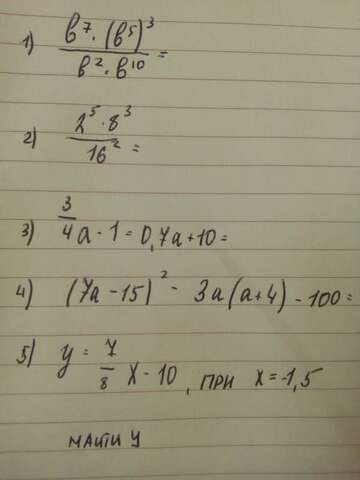 1) в⁷ · (в⁵)³ / в² · в¹⁰ =
2) 2⁵ · 8³ / 16² =
3) 3/4 a - 1 = 0,7a + 10 =
4) (7a - 15)² - 3a(a + 4) - 100 =
5) y = 7/8 x - 10, при x = -1,5
найти y